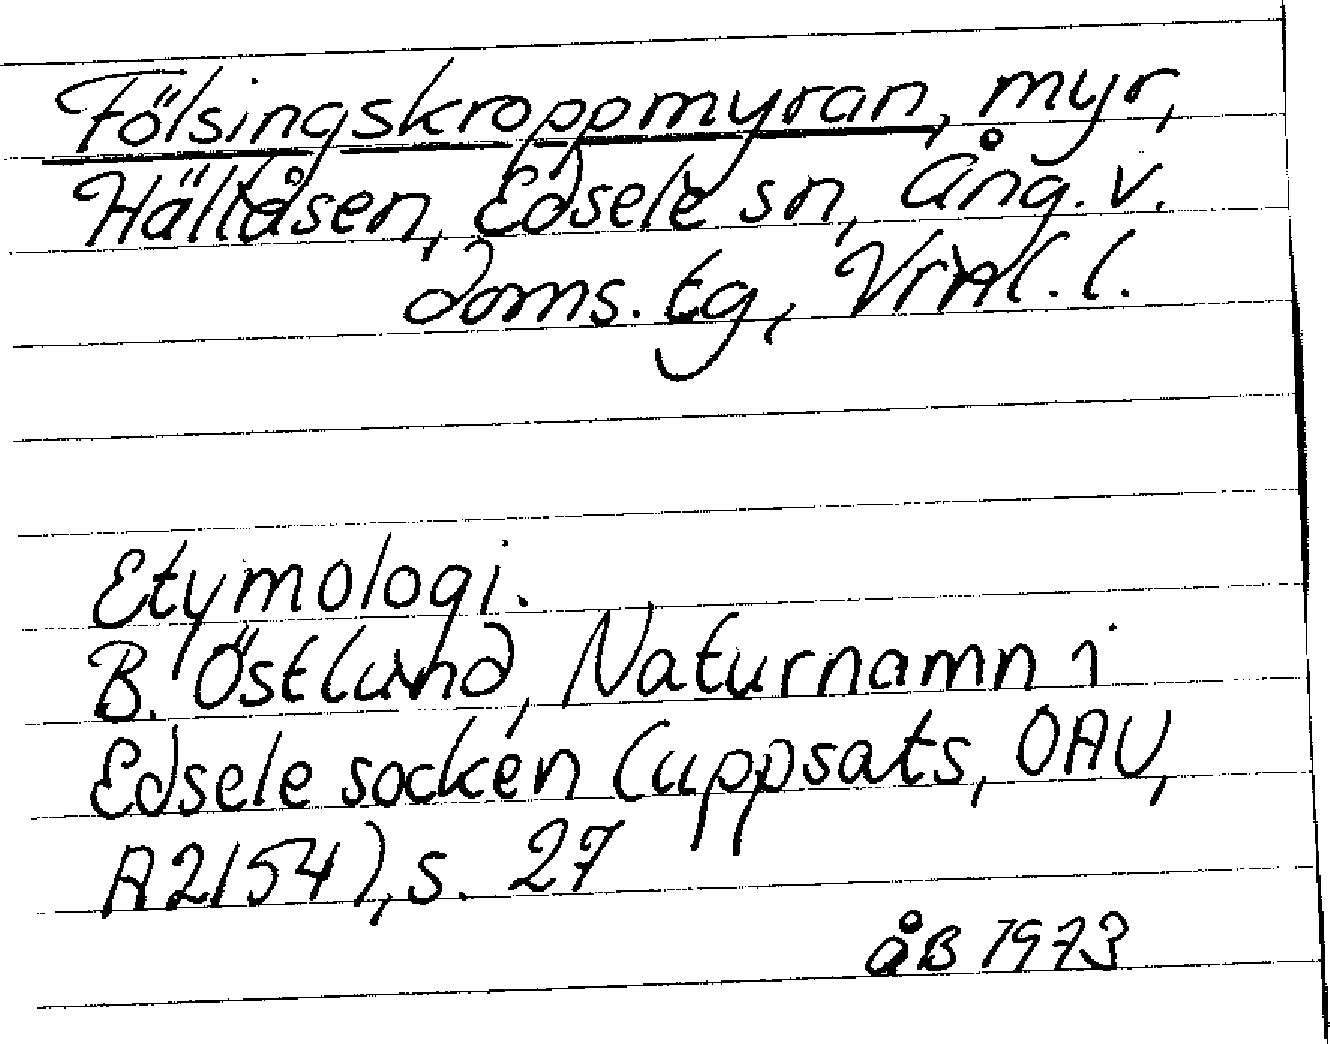 Fölsingskroppmyran, myr,
Hällåsen, Edsele sn, Ång. v.
doms. tg, Vrnl. l.
Etymologi.
B. Östlund, Naturnamn i
Edsele socken (uppsats, OAU,
A2154), s. 27
åB 1973